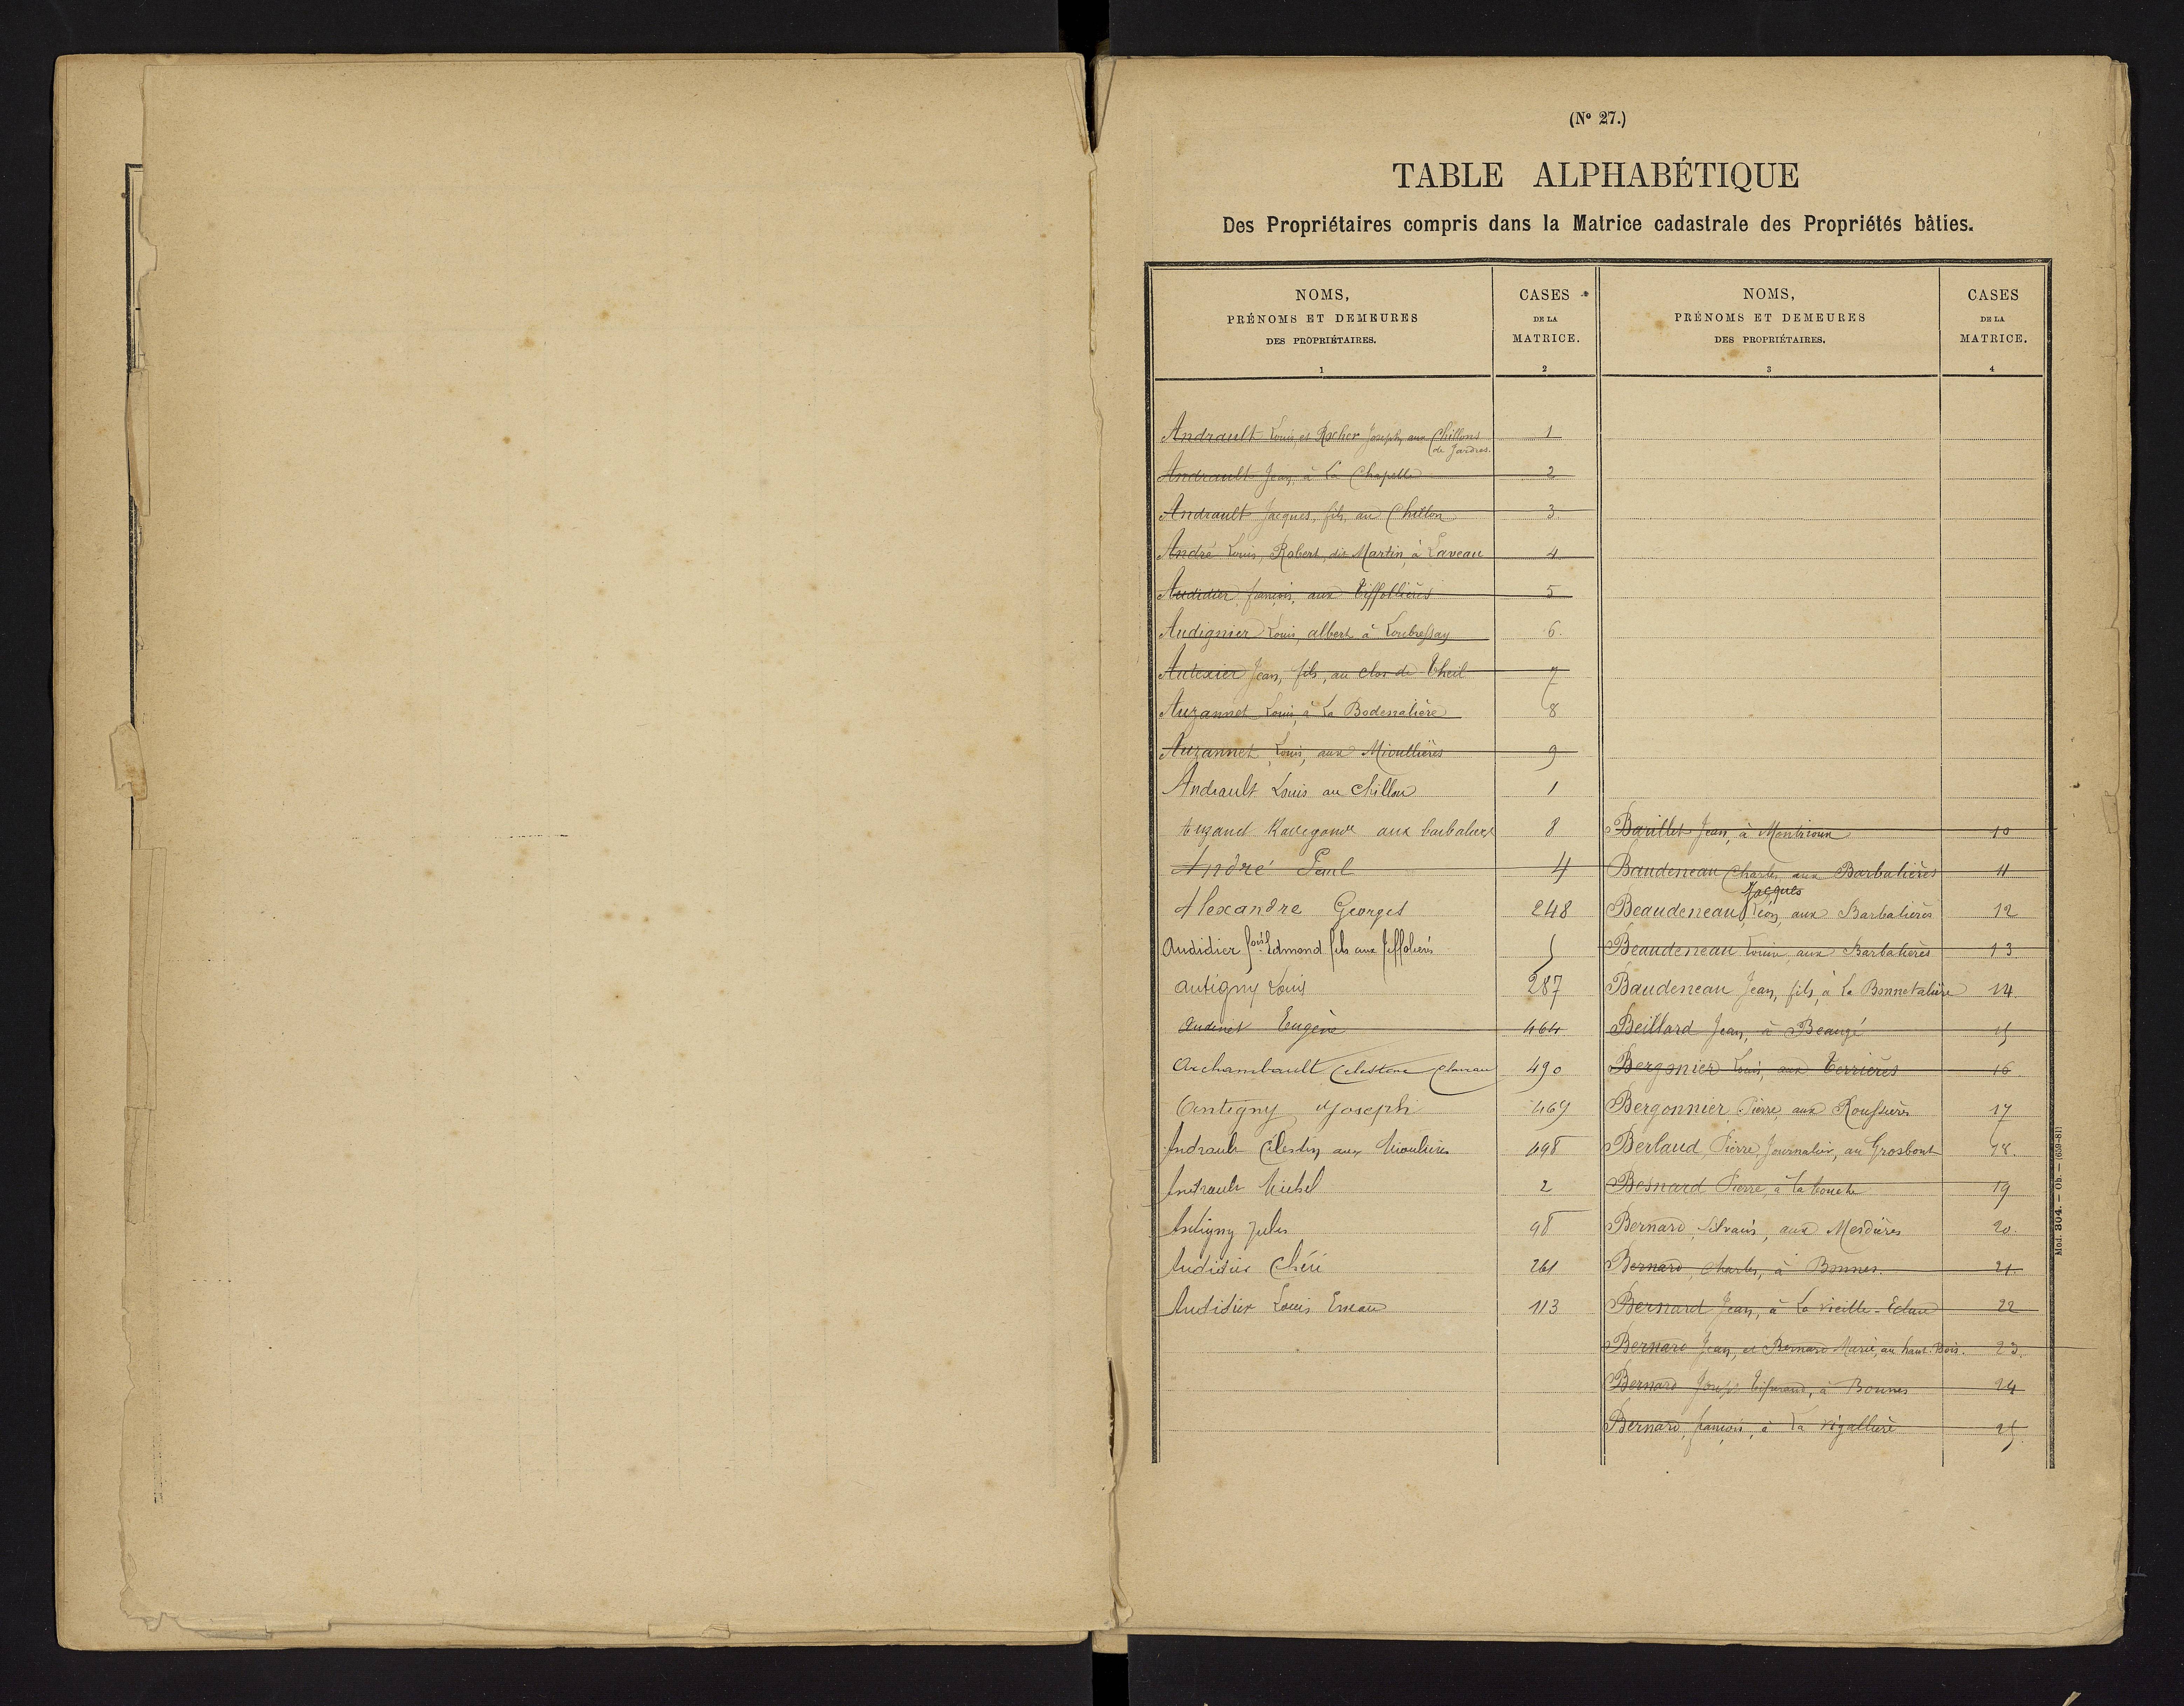 (Nº 27.)
TABLE ALPHABÉTIQUE
Des Propriétaires compris dans la Matrice cadastrale des Propriétés bâties.
NOMS,
PRÉNOMS ET DEMEURES
DES PROPRIÉTAIRES.
1
CASES
DE LA
MATRICE.
2
NOMS,
PRÉNOMS ET DEMEURES
DES PROPRIÉTAIRES.
3
CASES
DE LA
MATRICE.
4
Andrault Louis et Rocher Joseph, aux Chillons 1
de Jardres.
Andrault Jean, à La Chapelle 2
Andrault Jacques, fils, au Chillon 3
André Louis, Robert, dit Martin, à Laveau 4
Audidier françois, aux Tiffollières 5
Audignier Louis, albert à Loubressay 6.
Autexier Jean, fils, au clos de Theil 7
Auzannet Louis, à La Bodenalière 8
Auzannet, Louis, aux Mioullières 9
Andrault Louis au Chillon 1
aux barbalieres 8
André Paul 4
Alexandre Georges 248
Audidier Edmond fils aux 5
Antigny Louis 287
Audinet Eugène 464
Archambault Celestine 490
Antigny Joseph 469
Andrault Célestin aux Mioulières 498
Andrault Michel 2
Antigny Jules 98
Audidier Chéri 261
Audidier Louis 113
Barillet Jean, à Montrioux 10
Baudeneau Charles, aux Barbalières 11
Jacques
Beaudeneau, Léon, aux Barbalières 12
Beaudeneau Louis, aux Barbalières 13
Baudeneau Jean, fils, à La Bonnetalière 14.
Beillard Jean, à Beaugé 15
Bergonier Louis, aux Terrières 16
Bergonnier Pierre, aux Roussières 17
Berlaud Pierre, Journalier, au Grosbout 18.
Besnard Pierre, à la touche 19
Bernard, Silvain, aux Merdières 20.
Bernard, Charles, à Bonnes. 21.
Bernard Jean, à La vieille- 22
Bernard Jean, et Bernard Marie, au haut-Bois. 23.
Bernard à Bonnes 24
Bernard, françois, à La Vigallière 25.
Mod. 304. — Ob. — (639-81)